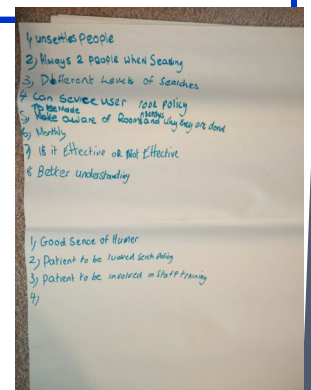 1) unsettles People
2) Always 2 people when Searing
3) Different Levels of Searches
4 Can Sevice user look policy
To be made
n searches
5) Make aware of Rooms and why they are done
6) Monthly
7) Is it Effective or Not Effective
8 Better understanding
1) Good Sence of Humer
2) Patient to be Ivoved Serch Policy
3) Patient to be involved in Staff training
4)